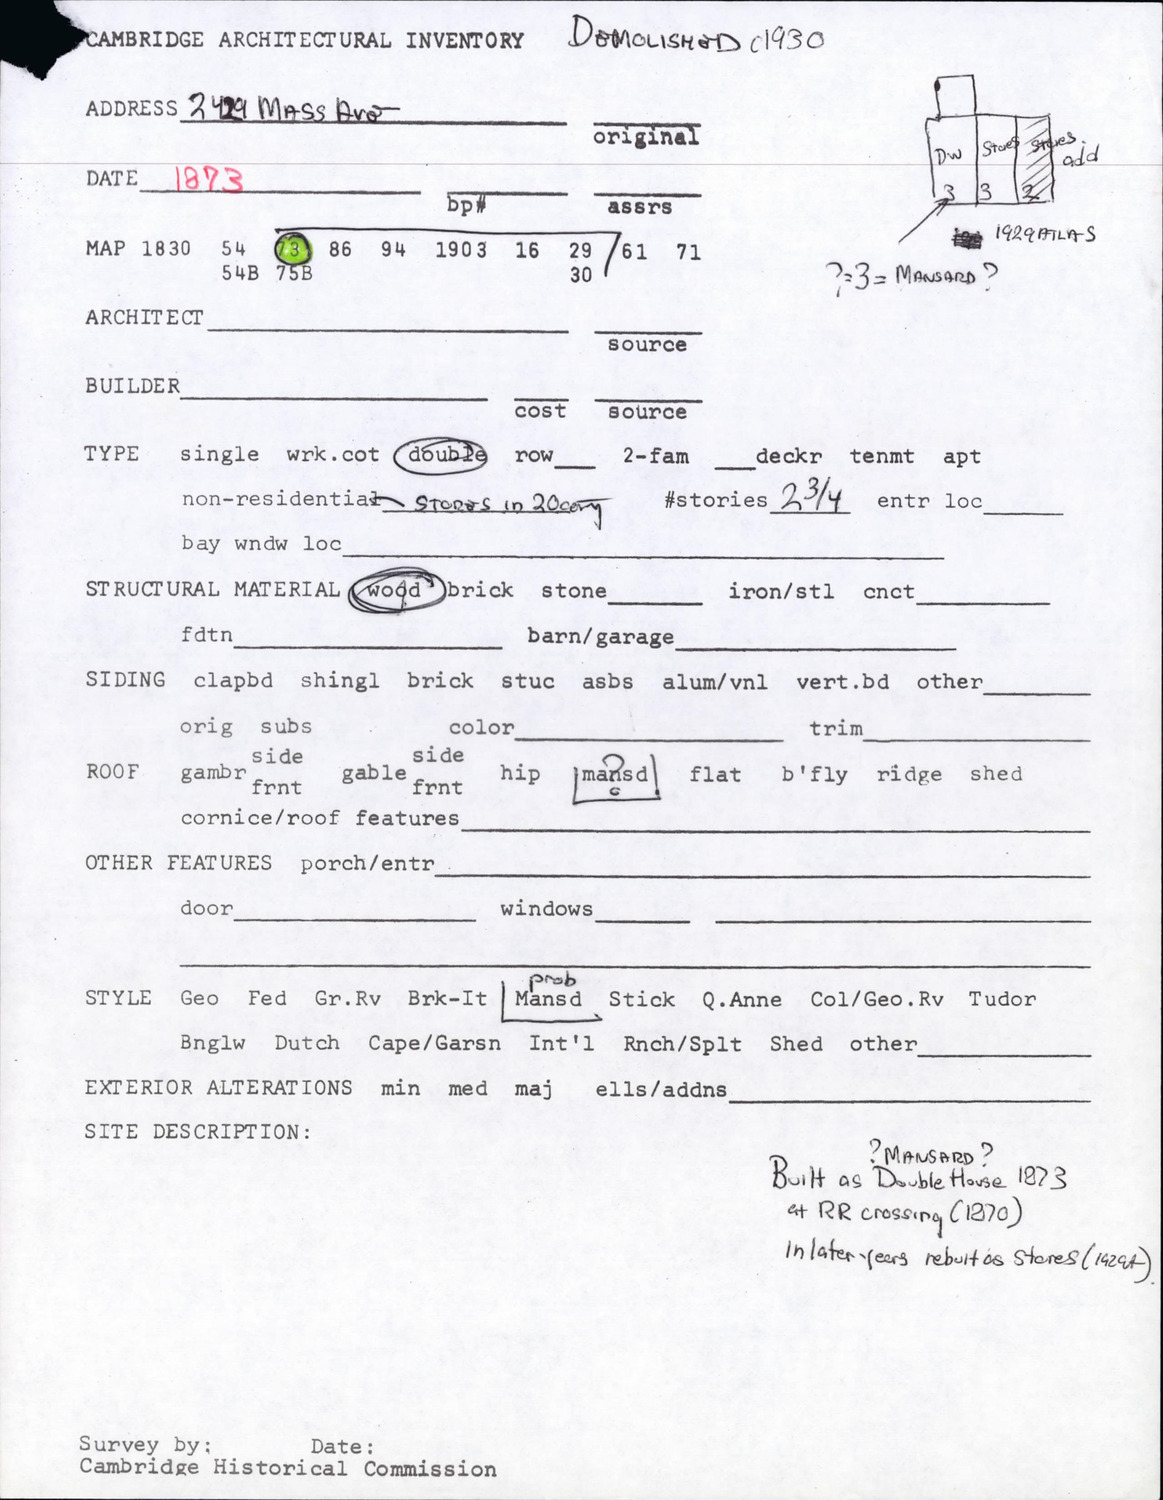 CAMBRIDGE ARCHITECTURAL INVENTORY DEMOLISHED c1930
ADDRESS 2429 MASS AVE
original
DW Stores Stores add
3 3 2
DATE 1873
bp# assrs
1929 ATLAS
MAP 1830 54 73 86 94 1903 16 29 61 71
54B 75B 30
?=3= MANSARD?
ARCHITECT
source
BUILDER
cost source
TYPE single wrk.cot double row___ 2-fam ___deckr tenmt apt
non-residential STORES in 20 #stories 2 3/4 entr loc
bay wndw loc
STRUCTURAL MATERIAL wood brick stone iron/stl cnct
fdtn barn/garage
SIDING clapbd shingl brick stuc asbs alum/vnl vert.bd other
orig subs color trim
side side
ROOF gambr gable hip mansd ? flat b'fly ridge shed
frnt frnt
cornice/roof features
OTHER FEATURES porch/entr
door windows
prob
STYLE Geo Fed Gr.Rv Brk-It Mansd Stick Q.Anne Col/Geo.Rv Tudor
Bnglw Dutch Cape/Garsn Int'l Rnch/Splt Shed other
EXTERIOR ALTERATIONS min med maj ells/addns
SITE DESCRIPTION:
?MANSARD?
Built as Double House 1873
at RR crossing (1870)
In later years rebuilt as Stores (1929A)
Survey by: Date:
Cambridge Historical Commission